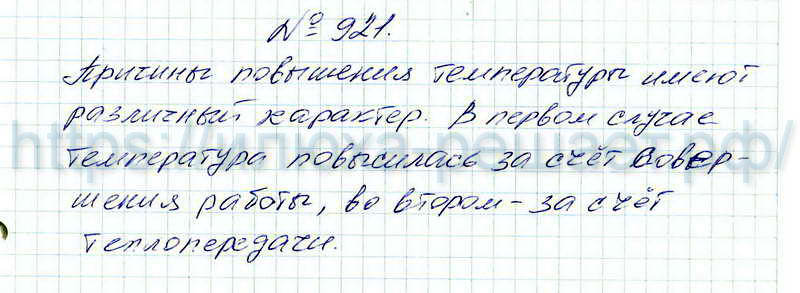 № 921.
Причины повышения температуры имеют
различный характер. В первом случае
температура повысилась за счёт совер-
шения работы, во втором - за счёт
теплопередачи.